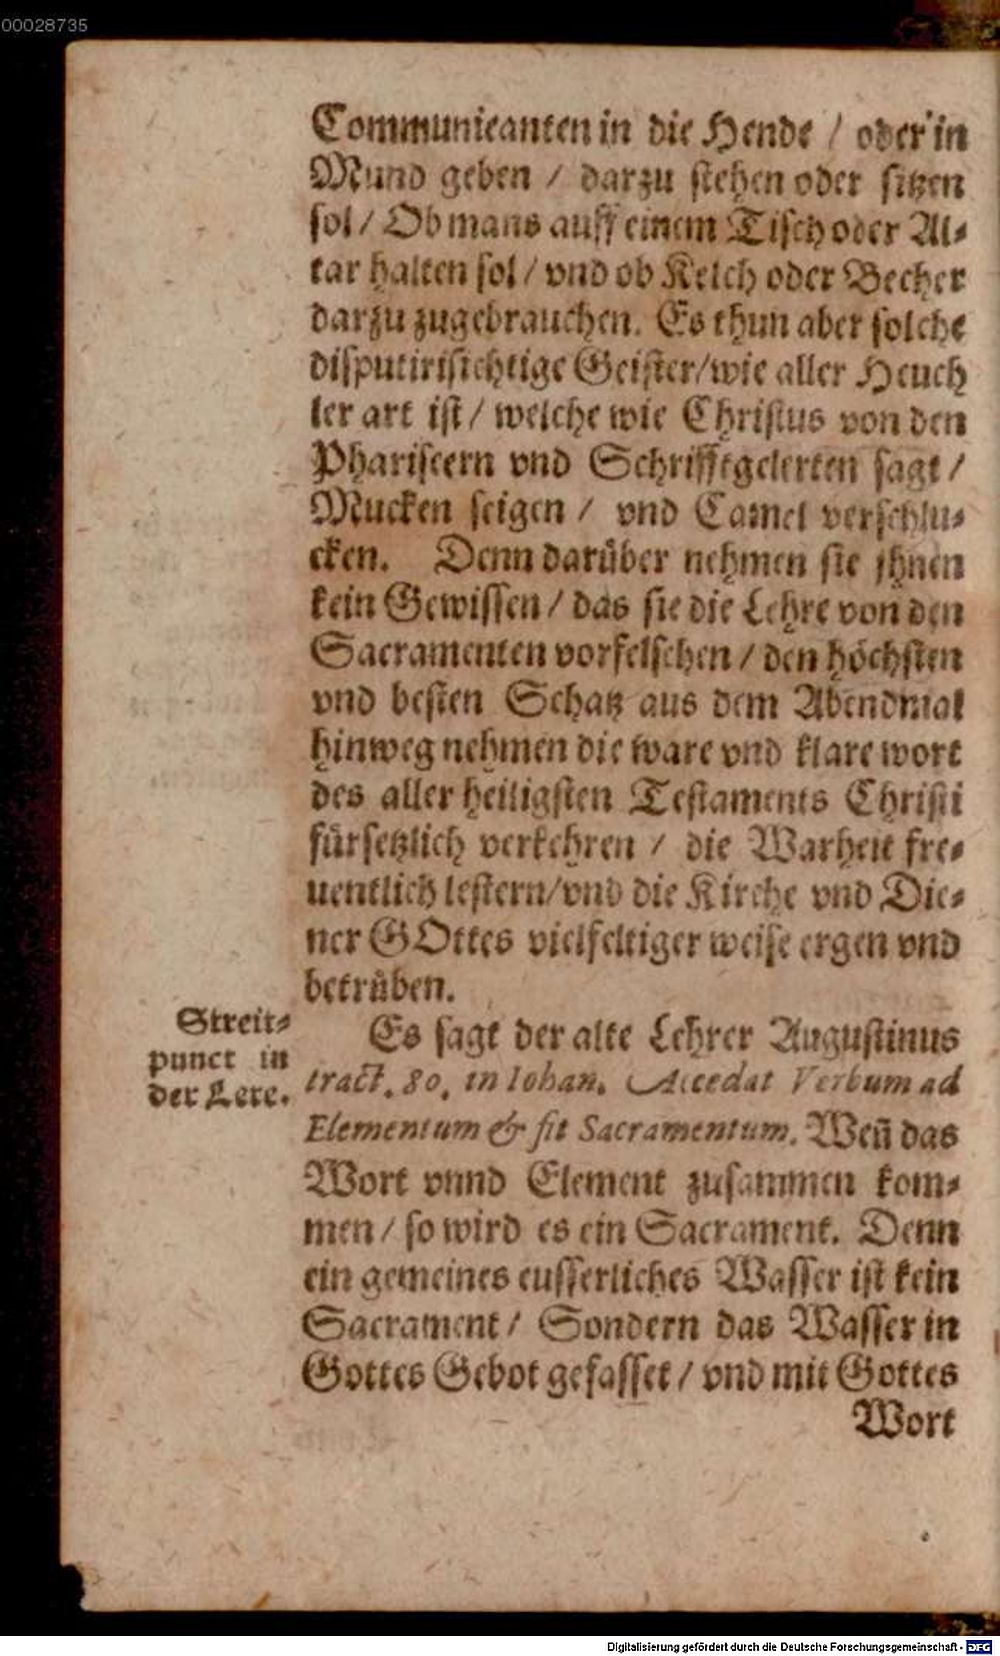 00028735
Communicanten in die Hende / oder in
Mund geben / darzu stehen oder sitzen
sol / Ob mans auff einem Tisch oder Al⸗
tar halten sol / vnd ob Kelch oder Becher
darzu zugebrauchen. Es thun aber solche
disputirsichtige Geister/wie aller Heuch
ler art ist / welche wie Christus von den
Phariseern vnd Schrifftgelerten sagt /
Mucken seigen / vnd Camel verschlu⸗
cken. Denn darüber nehmen sie jhnen
kein Gewissen / das sie die Lehre von den
Sacramenten vorfelschen / den höchsten
vnd besten Schatz aus dem Abendmal
hinweg nehmen die ware vnd klare wort
des aller heiligsten Testaments Christi
fürsetzlich verkehren / die Warheit fre⸗
uentlich lestern/vnd die Kirche vnd Die⸗
ner GOttes vielfeltiger weise ergen vnd
betrüben.
Streit⸗
punct in
der Lere.
Es sagt der alte Lehrer Augustinus
tract. 80. in Iohan. Accedat Verbum ad
Elementum & fit Sacramentum. Weñ das
Wort vnnd Element zusammen kom⸗
men / so wird es ein Sacrament. Denn
ein gemeines eusserliches Wasser ist kein
Sacrament / Sondern das Wasser in
Gottes Gebot gefasset / vnd mit Gottes
Wort
Digitalisierung gefördert durch die Deutsche Forschungsgemeinschaft - DFG